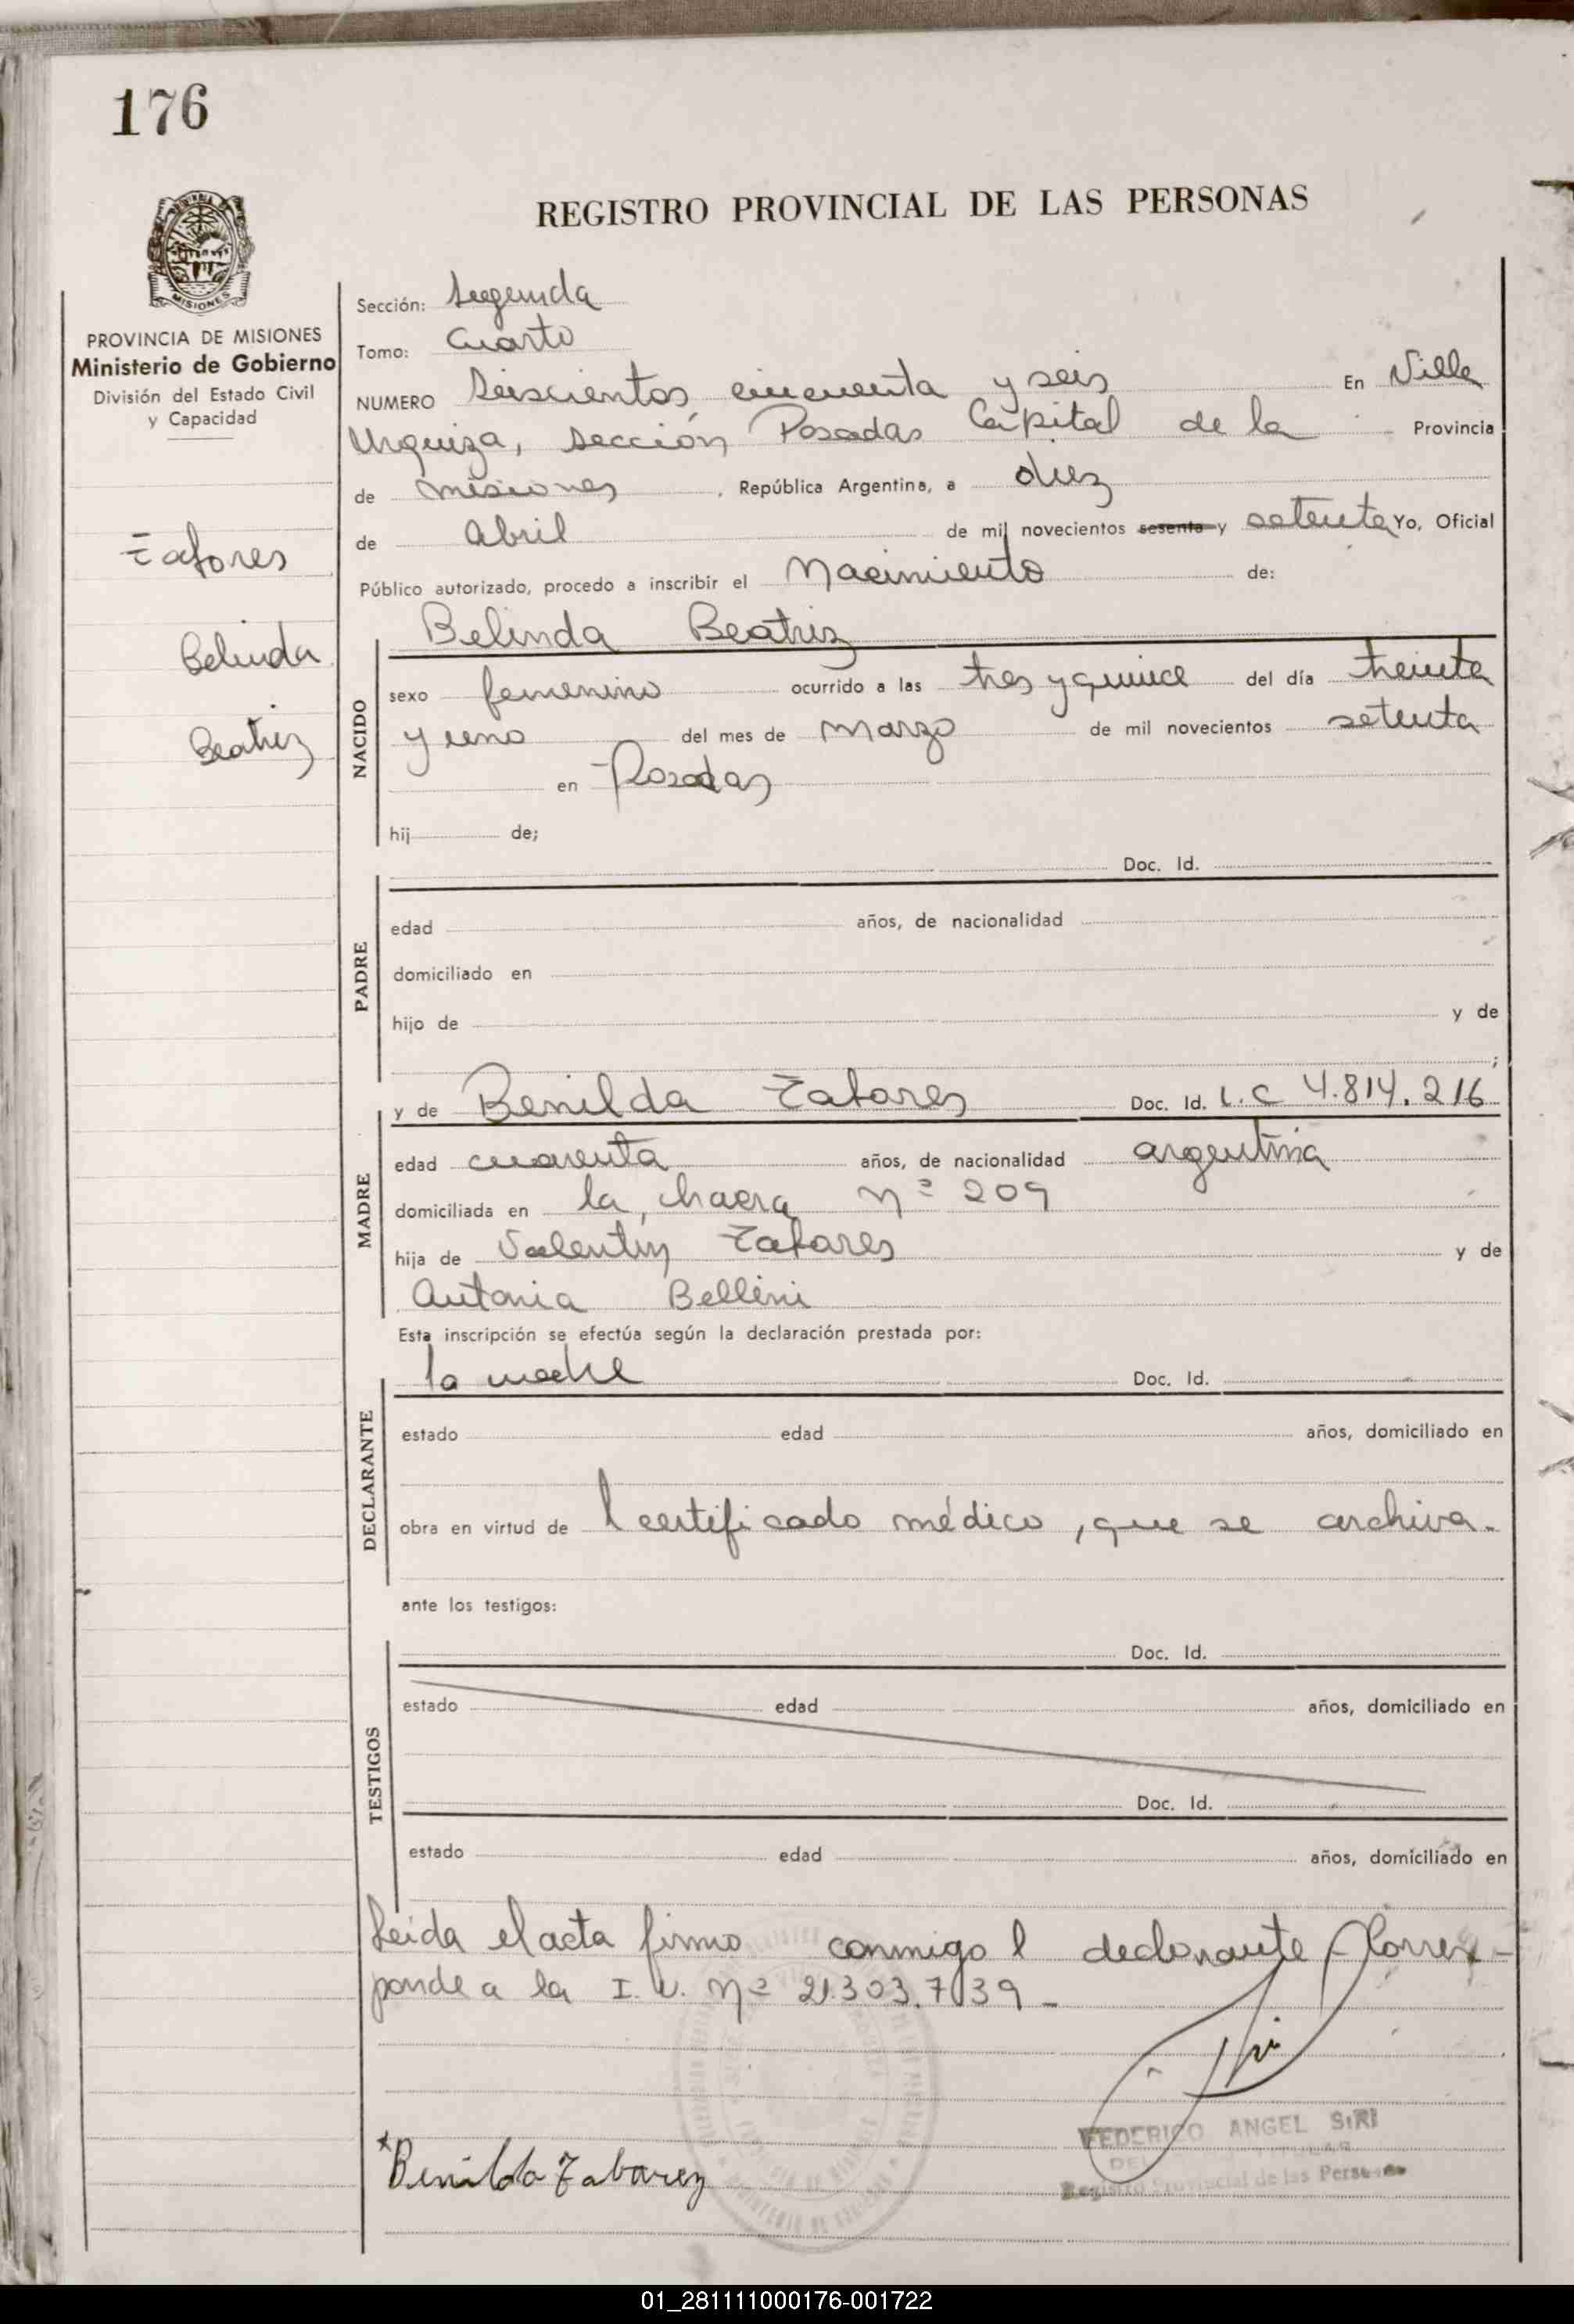 176
REGISTRO PROVINCIAL DE LAS PERSONAS
MISIONES
PROVINCIA DE MISIONES
Ministerio de Gobierno
División del Estado Civil
y Capacidad
Tafores
Belinda
Beatriz
Sección: Segunda
Tomo: Cuarto
NUMERO Seiscientos cincuenta y seis En Villa
Urquiza, sección Posadas Capital de la Provincia
de misiones, República Argentina, a diez
de Abril de mil novecientos sesenta y setenta Yo, Oficial
Público autorizado, procedo a inscribir el Nacimiento de:
Belinda Beatriz
NACIDO
sexo femenino ocurrido a las tres y quince del día treinta
y uno del mes de marzo de mil novecientos setenta
en Posadas
hij de;
Doc. Id.
PADRE
edad años, de nacionalidad
domiciliado en
hijo de y de
;
y de Benilda Tafares Doc. Id. L.C 4.814.216
MADRE
edad cuarenta años, de nacionalidad argentina
domiciliada en la, chacra Nº 209
hija de Valentin Tafares y de
Antonia Bellini
Esta inscripción se efectúa según la declaración prestada por:
la madre Doc. Id.
DECLARANTE
estado edad años, domiciliado en
obra en virtud de l certificado médico, que se archiva.
ante los testigos:
Doc. Id.
TESTIGOS
estado edad años, domiciliado en
Doc. Id.
estado edad años, domiciliado en
Leida el acta firmo conmigo l declarante Corres-
ponde a la I. U. Nº 21.303.739 -
FEDERICO ANGEL SIRI
Registro Provincial de las Personas
*Benilda Tabarez
01_281111000176-001722